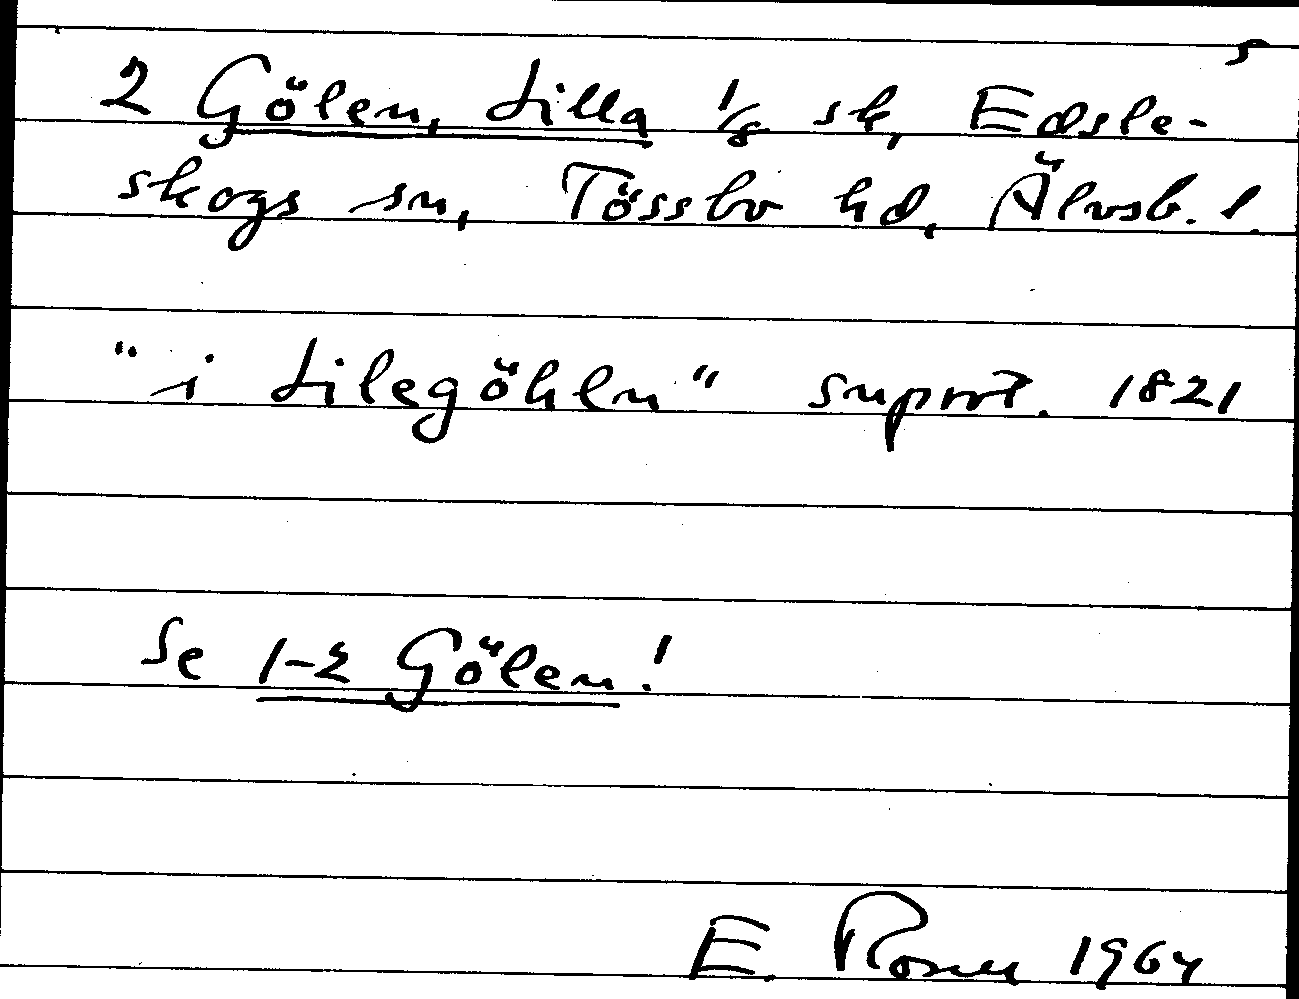 s
2 Gölen, Lilla 1/8 sk, Edsle-
skogs sn, Tössbo hd, Älvsb. l.
"i Lilegöhln" snprot. 1821
Se 1-2 Gölen!
E. Rosell 1964